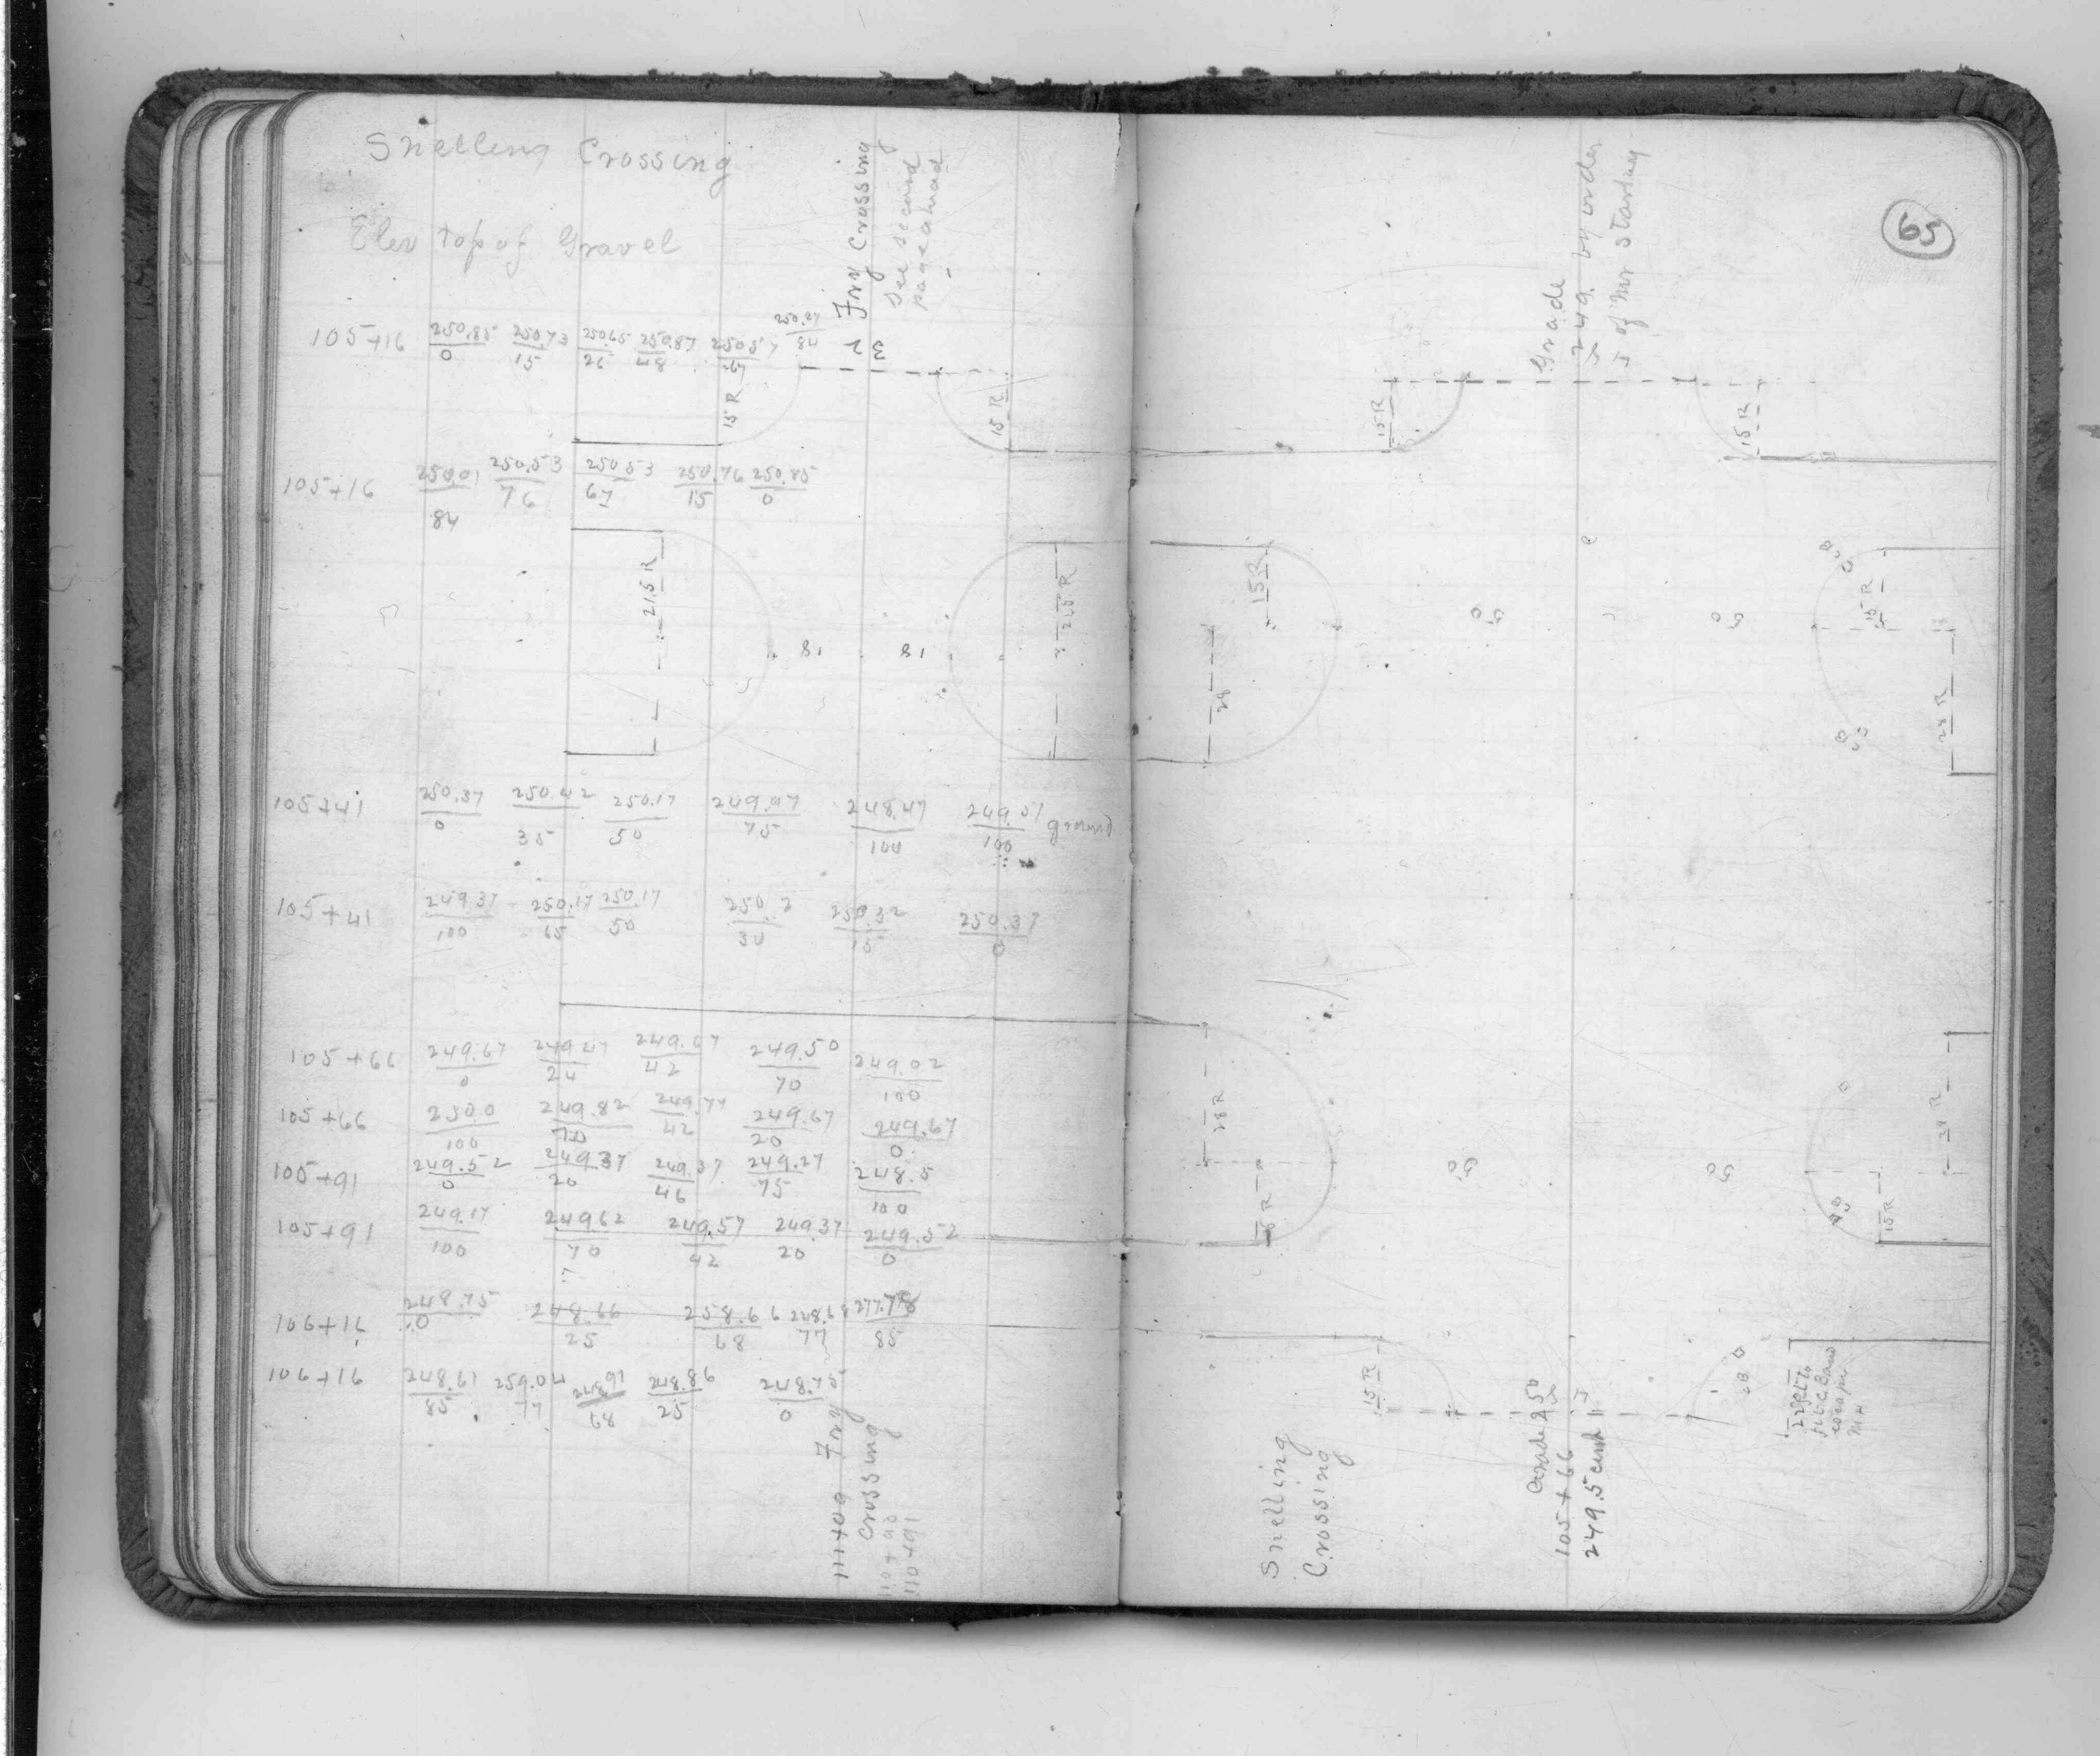 Snelling Crossing
Elev top of Gravel
Fry Crossing
See second
page ahead
105+16 250.85/0 250.73/15 250.65/26 250.87/48
15 R
15 R
105+16 250.01/84 250.53/76 250.53/67 250.76/15 250.85/0
21.5 R
18 18
21.5 R
105+41 250.37/0 250.42/35 250.17/50 249.97/75 248.47/100 249.51/100 ground
105+41 249.37/100 250.17/65 250.17/50 250.2/30 250.32/15 250.37/0
105+66 249.67/0 249.47/24 249.67/42 249.50/70 249.02/100
105+66 250.0/100 249.82/70 249.77/42 249.67/20 249.67/0
105+91 249.52/0 249.37/20 249.37/46 249.27/75 248.5/100
105+91 249.17/100 249.62/70 249.57/42 249.37/20 249.52/0
106+16 248.75/0 248.66/25 258.66/68
106+16 248.61/85 259.04/77 248.86/25 248.75/0
111+09 Fry
Crossing
110+91
65
Grade
249. by order
of Mr Starkey
15 R
15 R
15 R
28
50
50
15 R
28 R
28 R
15 R
50
50
28 R
15 R
15 R
Snelling
Crossing
Grade 250
105+66
249.5 curb